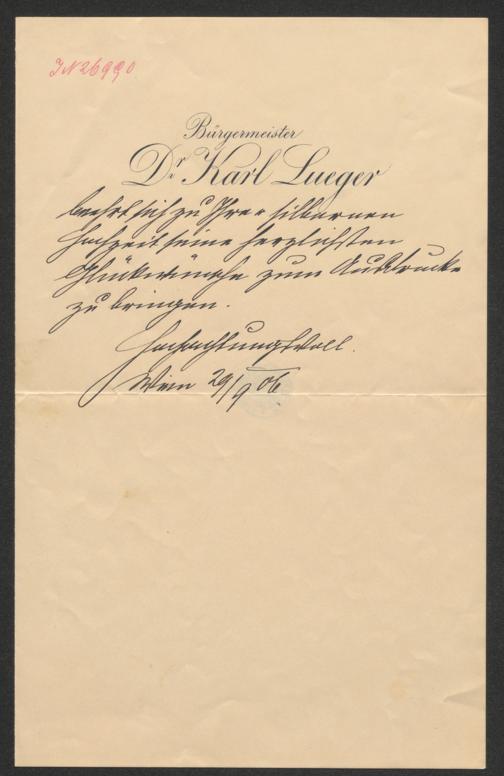 IN 26990
Bürgermeister
Dr. Karl Lueger
beehrt sich zu Ihrer silbernen
Hochzeit seine herzlichsten
Glückwünsche zum Ausdrucke
zu bringen.
Hochachtungsvoll.
Wien 29/9 06.